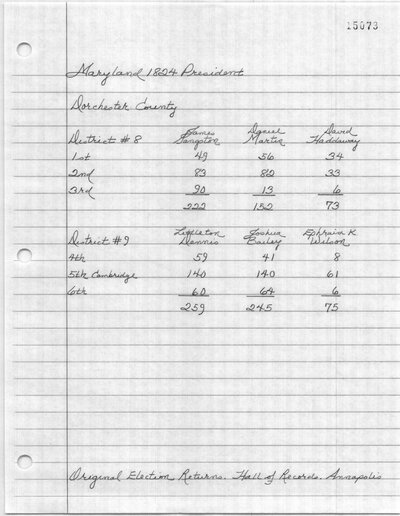 15073
Maryland 1824 President
Dorchester County
James Daniel David
District #8 Sangston Martin Haddaway
1st 49 56 34
2nd 83 82 33
3rd 90 13 6
222 152 73
Littleton Joshua Ephraim K
District #9 Dennis Bailey Wilson
4th 59 41 8
5th Cambridge 140 140 61
6th 60 64 6
259 245 75
Original Election Returns. Hall of Records. Annapolis